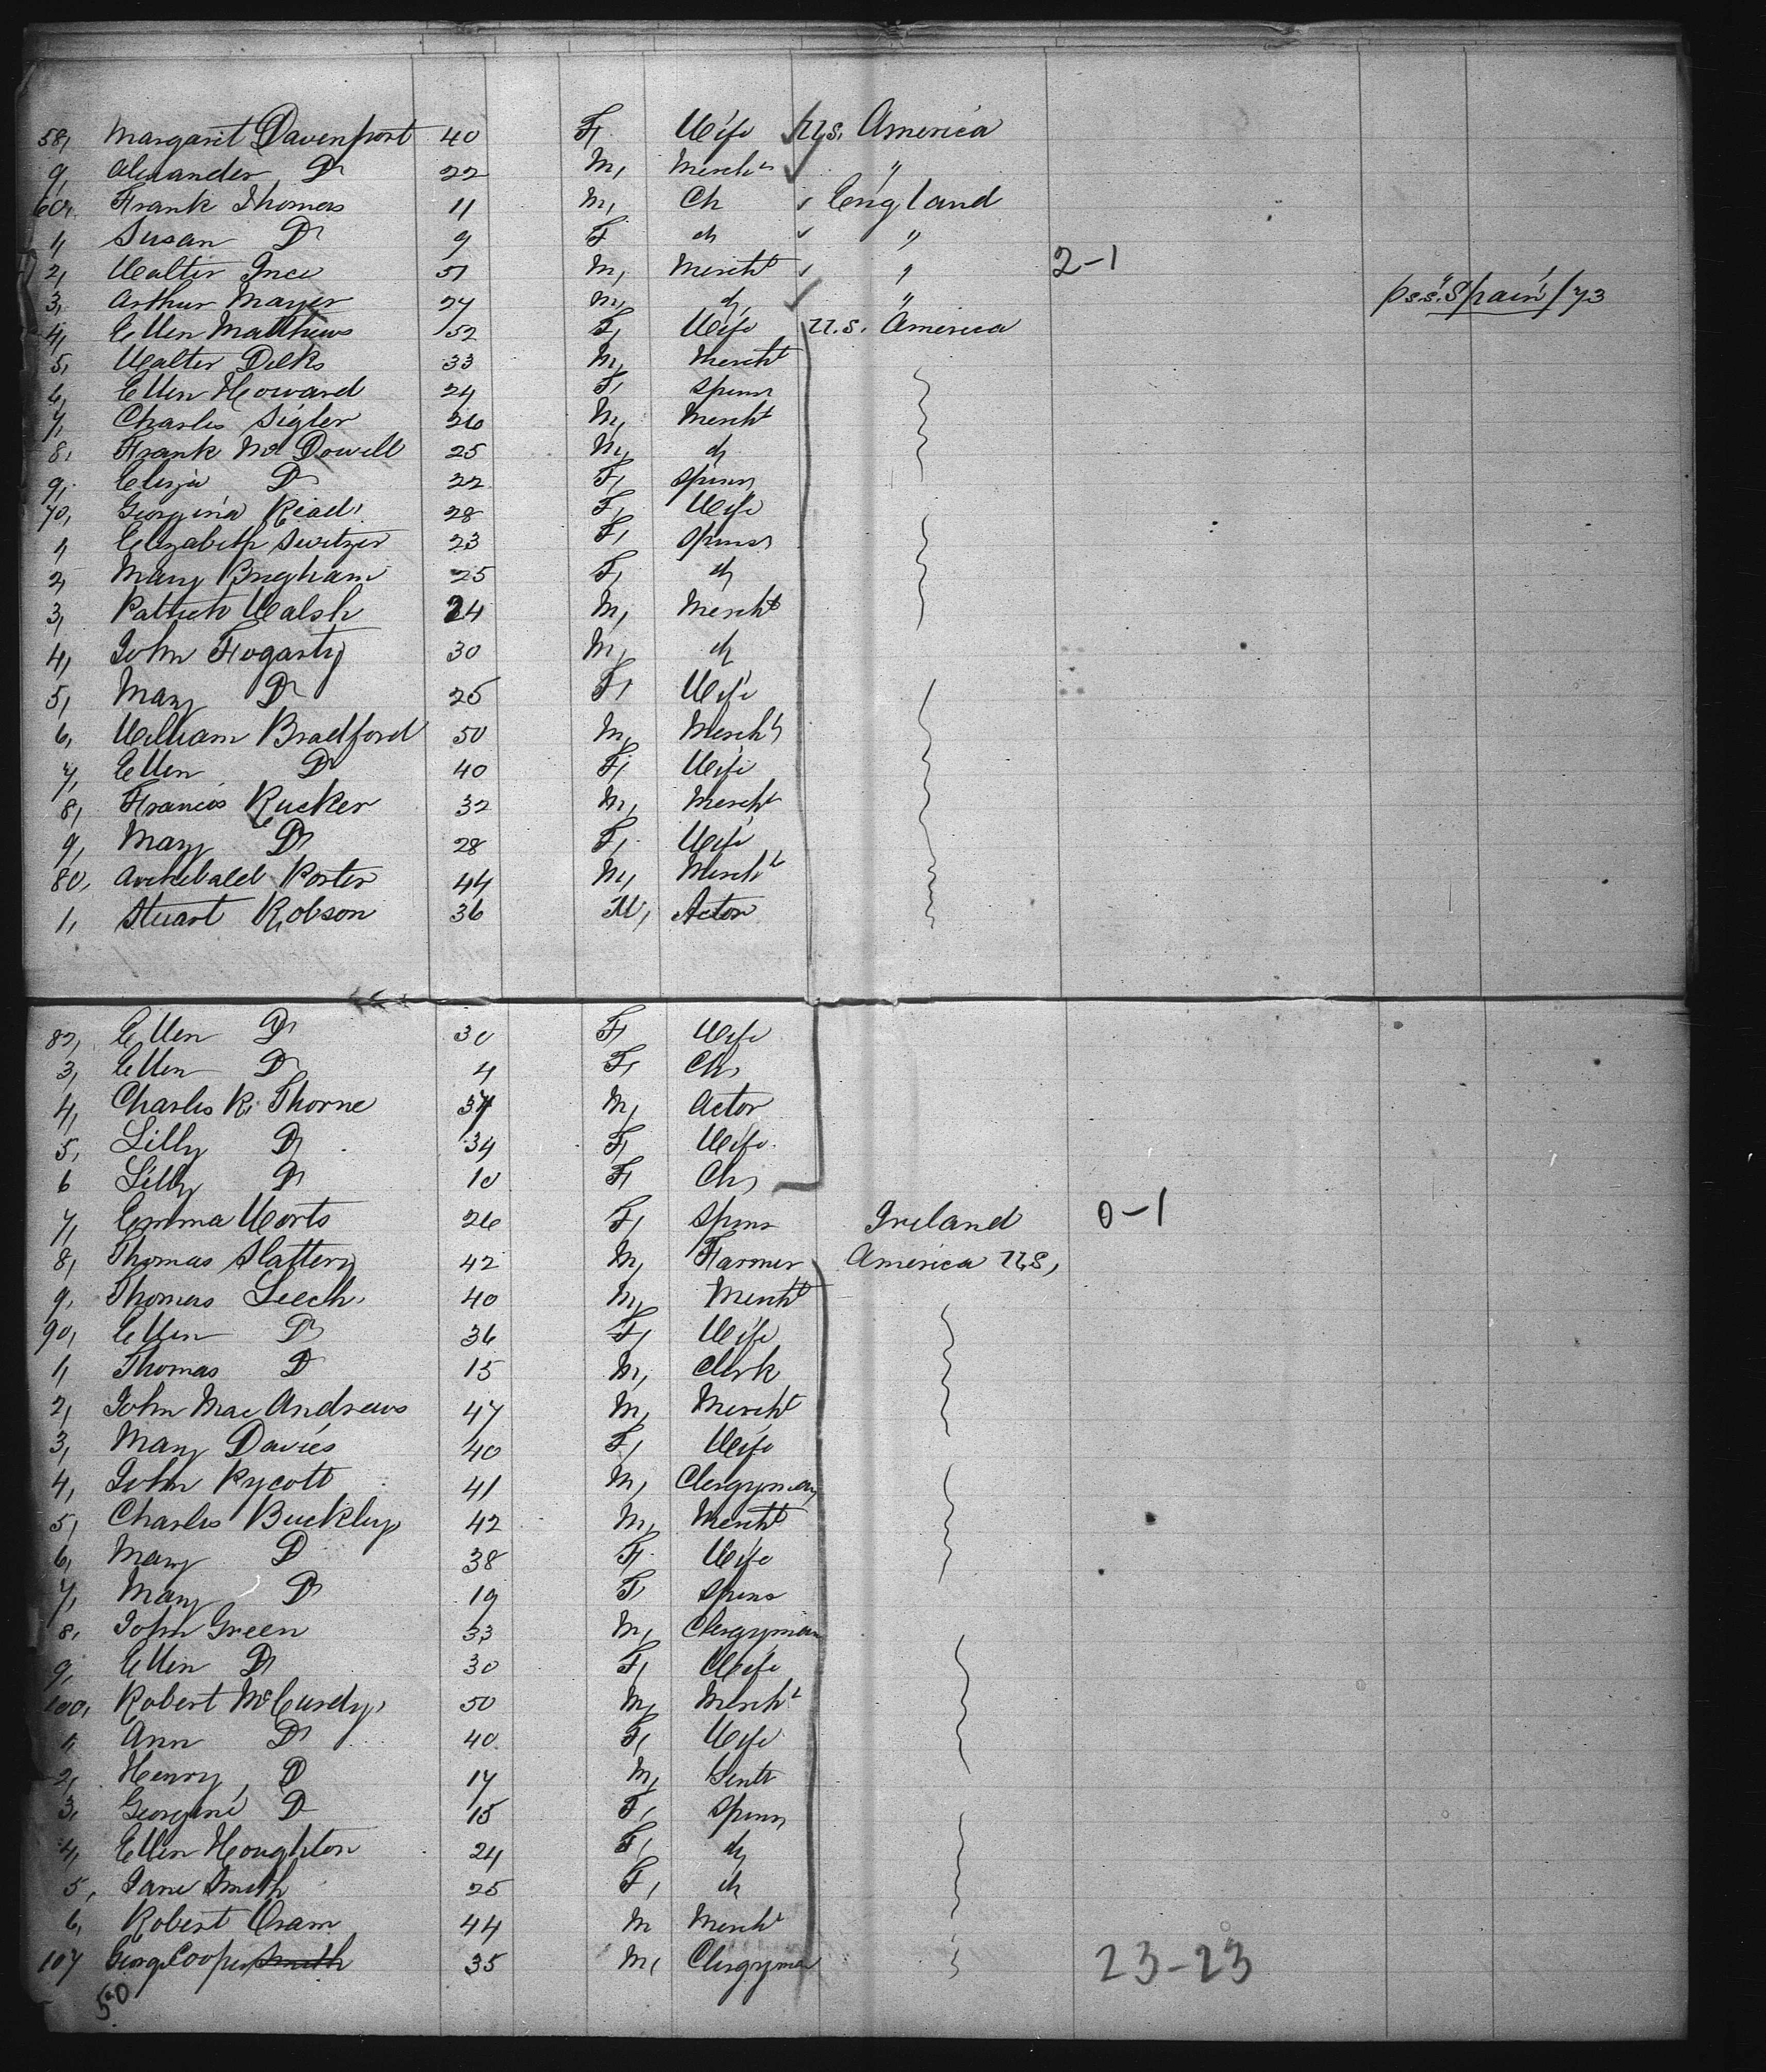 58, Margaret Davenport 40 F. Wife U.S. America
9, Alexander Do 22 M, Mercht "
60, Frank Thomas 11 M, Ch England
1, Susan Do 9 F do "
2, Walter Ince 51 M, Mercht " 2-1
3, Arthur Mayer 27 M, do " p s.s. "Spain" /73
4, Ellen Matthews 52 F, Wife U.S. America
5, Walter Dilks 33 M, Mercht
6, Ellen Howard 24 F, Spinr
7, Charles Sigler 26 M, Mercht
8, Frank McDowell 25 M, do
9, Eliza Do 22 F, Spinr
70, Georgina Read 28 F, Wife
1, Elizabeth Switzer 23 F, Spinsr
2, Mary Bingham 25 F, do
3, Patrick Walsh 24 M, Mercht
4, John Fogarty 30 M, do
5, Mary Do 25 F, Wife
6, William Bradford 50 M, Mercht
7, Ellen Do 40 F, Wife
8, Francis Rucker 32 M, Mercht
9, Mary Do 28 F, Wife
80, Archibald Porter 44 M, Mercht
1, Stuart Robson 36 M, Actor
82, Ellen Do 30 F, Wife
3, Ellen Do 4 F, Ch,
4, Charles R. Thorne 34 M, Actor
5, Lilly Do 34 F, Wife
6 Lilly Do 10 F, Ch,
7, Emma Worts 26 F, Spinr Ireland 0-1
8, Thomas Slattery 42 M, Farmer America U.S,
9, Thomas Leech 40 M, Mercht
90, Ellen Do 36 F, Wife
1, Thomas Do 15 M, Clerk
2, John Mac Andrews 47 M, Mercht
3, Mary Davies 40 F, Wife
4, John Rycott 41 M, Clergyman
5, Charles Buckley 42 M, Mercht
6, Mary Do 38 F. Wife
7, Mary Do 19 F Spinr
8, John Green 33 M, Clergyman
9, Ellen Do 30 F, Wife
100, Robert McCurdy 50 M, Mercht
1, Ann Do 40 F, Wife
2, Henry Do 17 M, Gentn
3, Georgine Do 15 F, Spinr
4, Ellen Houghton 24 F, do
5, Jane Smith 25 F, do
6, Robert Oram 44 M Mercht
107 George Cooper Smith 35 M, Clergyman 23-23
50